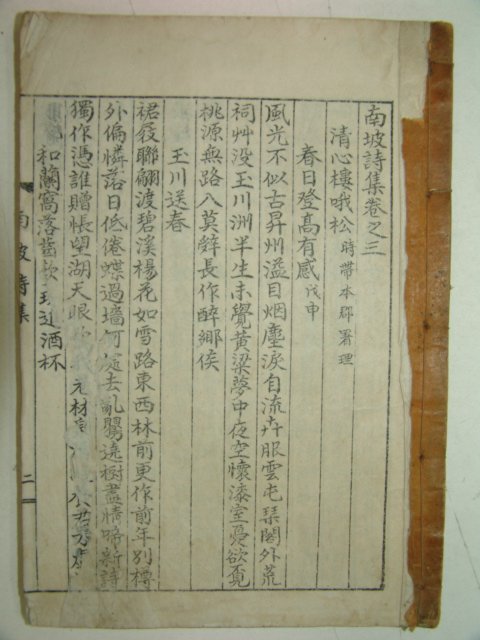 南坡詩集卷之三
清心樓哦松 時帶本郡署理
春日登高有感 戊申
風光不似古昇州溢目烟塵淚自流卉服雲屯琹閣外荒
祠艸没玉川洲半生未覺黃粱夢中夜空懷漆室憂欲覓
桃源無路入莫辤長作醉鄉侯
玉川送春
裙屐聯翩渡碧溪楊花如雪路東西林前更作前年別樽
外偏憐落日低倦蝶過墻何處去亂鸎遶樹盡情啼新詩
獨作憑誰贈悵望湖天眼
和蘭窩落齒
酒杯
南坡詩集
二